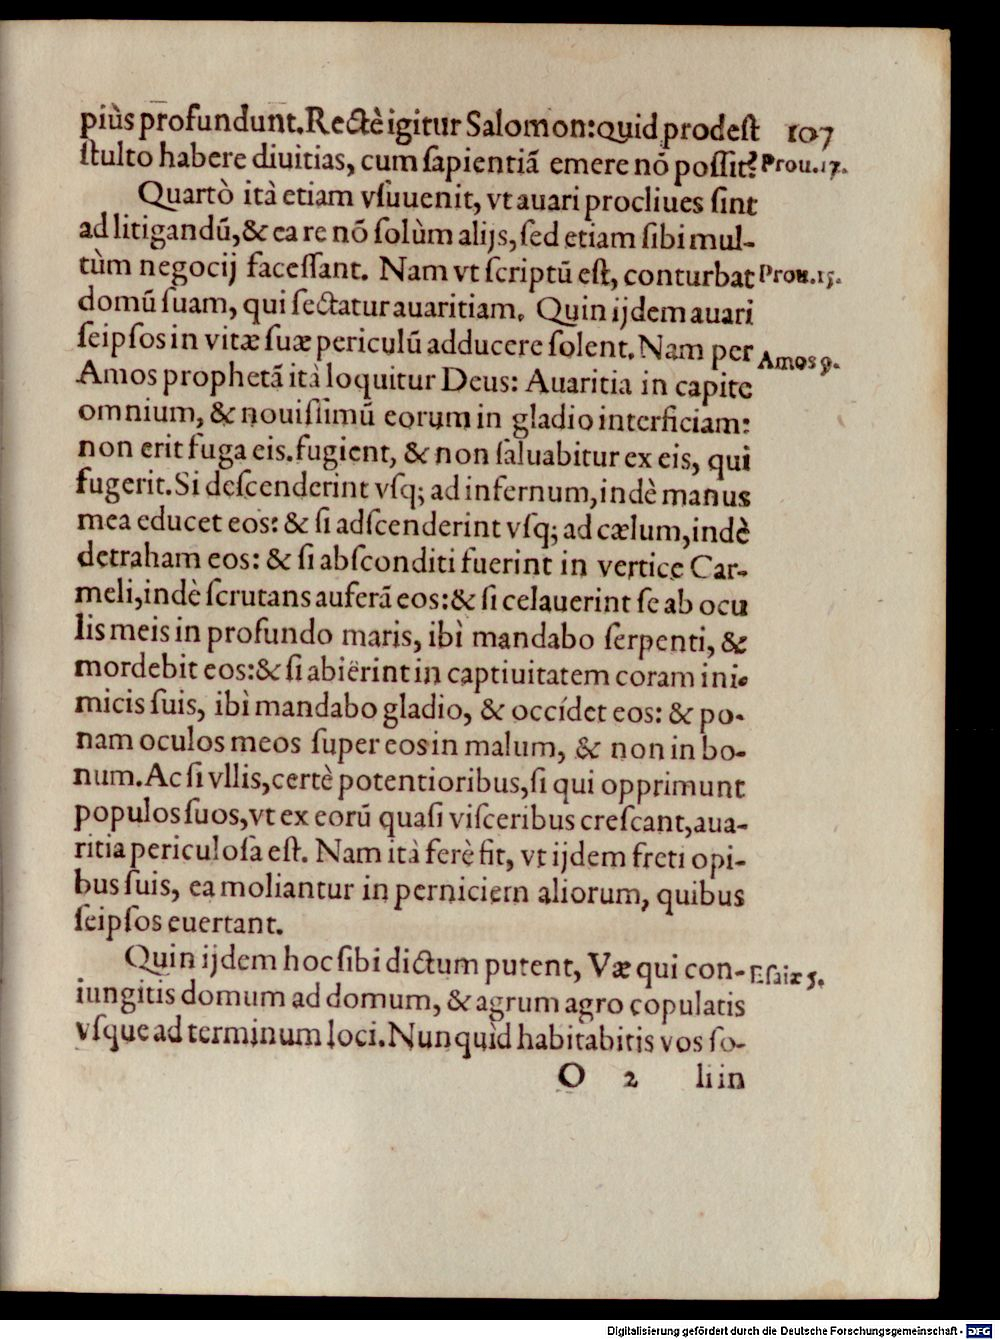 piùs profundunt. Rectè igitur Salomon: quid prodest 107
stulto habere diuitias, cum sapientiã emere nõ possit? Prou. 17.
Quartò ità etiam vsuuenit, vt auari procliues sint
ad litigandũ, & ea re nõ solùm alijs, sed etiam sibi mul-
tùm negocij facessant. Nam vt scriptũ est, conturbat Prou. 15.
domũ suam, qui sectatur auaritiam. Quin ijdem auari
seipsos in vitæ suæ periculũ adducere solent. Nam per
Amos prophetã ità loquitur Deus: Auaritia in capite Amos 9.
omnium, & nouissimũ eorum in gladio interficiam:
non erit fuga eis. fugient, & non saluabitur ex eis, qui
fugerit. Si descenderint vsq; ad infernum, indè manus
mea educet eos: & si adscenderint vsq; ad cælum, indè
detraham eos: & si absconditi fuerint in vertice Car-
meli, indè scrutans auferã eos: & si celauerint se ab ocu
lis meis in profundo maris, ibì mandabo serpenti, &
mordebit eos: & si abiërint in captiuitatem coram ini-
micis suis, ibì mandabo gladio, & occídet eos: & po-
nam oculos meos super eos in malum, & non in bo-
num. Ac si vllis, certè potentioribus, si qui opprimunt
populos suos, vt ex eorũ quasi visceribus crescant, aua-
ritia periculosa est. Nam ità ferè fit, vt ijdem freti opi-
bus suis, ea moliantur in perniciem aliorum, quibus
seipsos euertant.
Quin ijdem hoc sibi dictum putent, Væ qui con- Esaiæ 5.
iungitis domum ad domum, & agrum agro copulatis
vsque ad terminum loci. Nunquìd habitabitis vos so-
O 2 li in
Digitalisierung gefördert durch die Deutsche Forschungsgemeinschaft - DFG